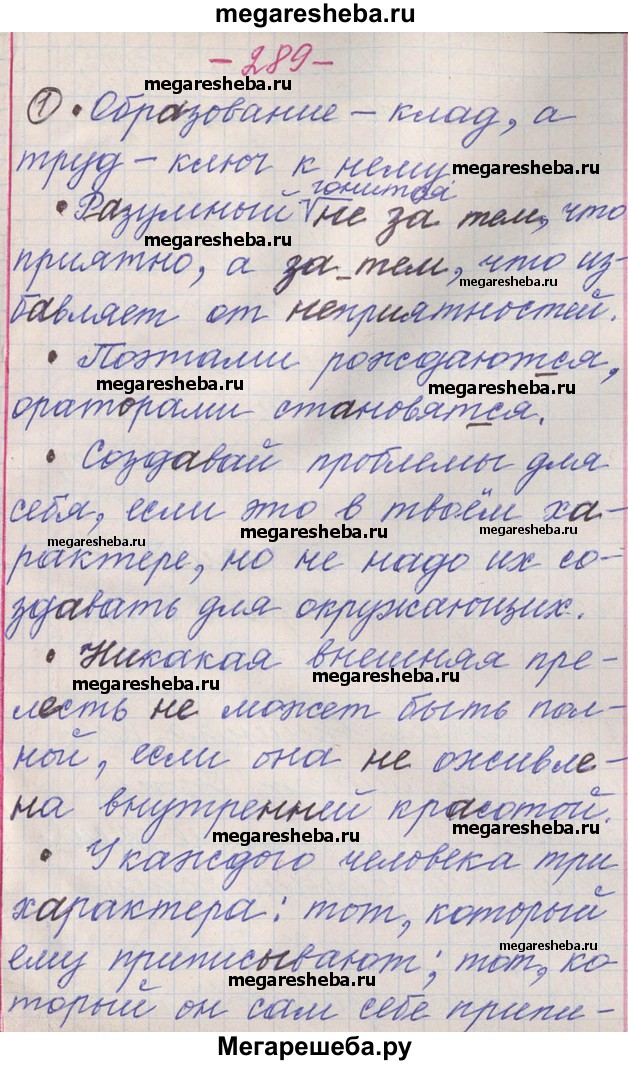 megaresheba.ru
- 289 -
megaresheba.ru
① • Образование – клад, а
труд – ключ к нему
megaresheba.ru
гонится
• Разумный √ не за тем, что
megaresheba.ru
приятно, а за_тем, что из-
megaresheba.ru
бавляет от неприятностей.
• Поэтами рождаются,
megaresheba.ru
megaresheba.ru
ораторами становятся.
• Создавай проблемы для
себя, если это в твоём ха-
megaresheba.ru
megaresheba.ru
megaresheba.ru
рактере, но не надо их со-
здавать для окружающих.
• Никакая внешняя пре-
megaresheba.ru
megaresheba.ru
лесть не может быть пол-
ной, если она не оживле-
на внутренней красотой.
megaresheba.ru
megaresheba.ru
• У каждого человека три
характера: тот, который
megaresheba.ru
ему приписывают; тот, ко-
megaresheba.ru
торый он сам себе припи-
Мегарешеба.ру